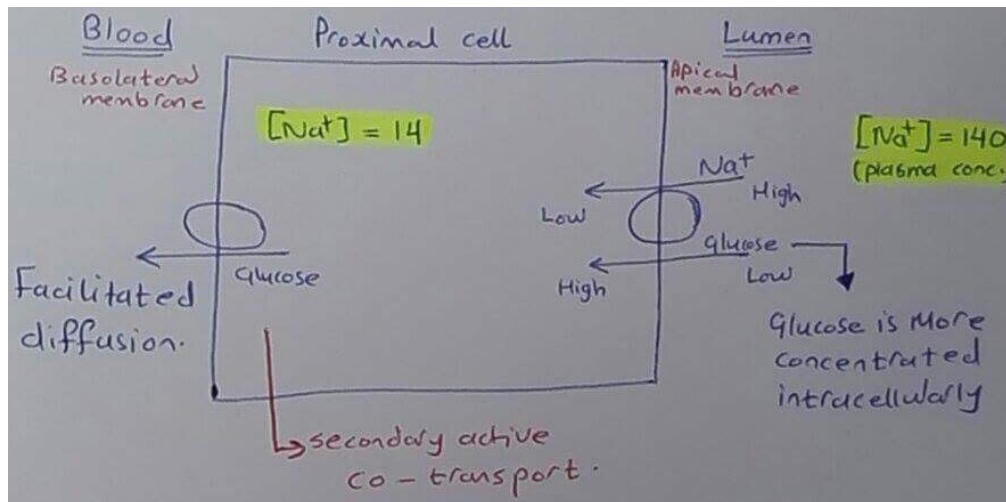 Blood
Proximal cell
Lumen
Basolateral
membrane
Apical
membrane
[Na+] = 14
[Na+] = 140
(plasma conc.
Na+
High
Low
Glucose
Low
High
Glucose
Facilitated
diffusion.
Glucose is More
concentrated
intracellularly
secondary active
co-transport.